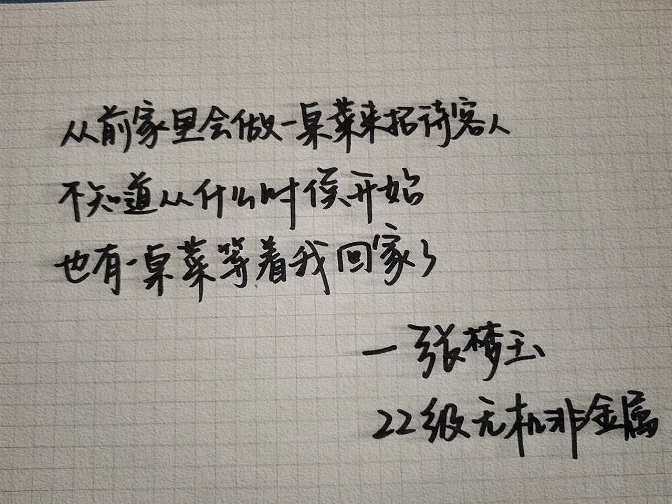 从前家里会做一桌菜来招待客人
不知道从什么时候开始
也有一桌菜等着我回家了
一张梦玉
22级无机非金属